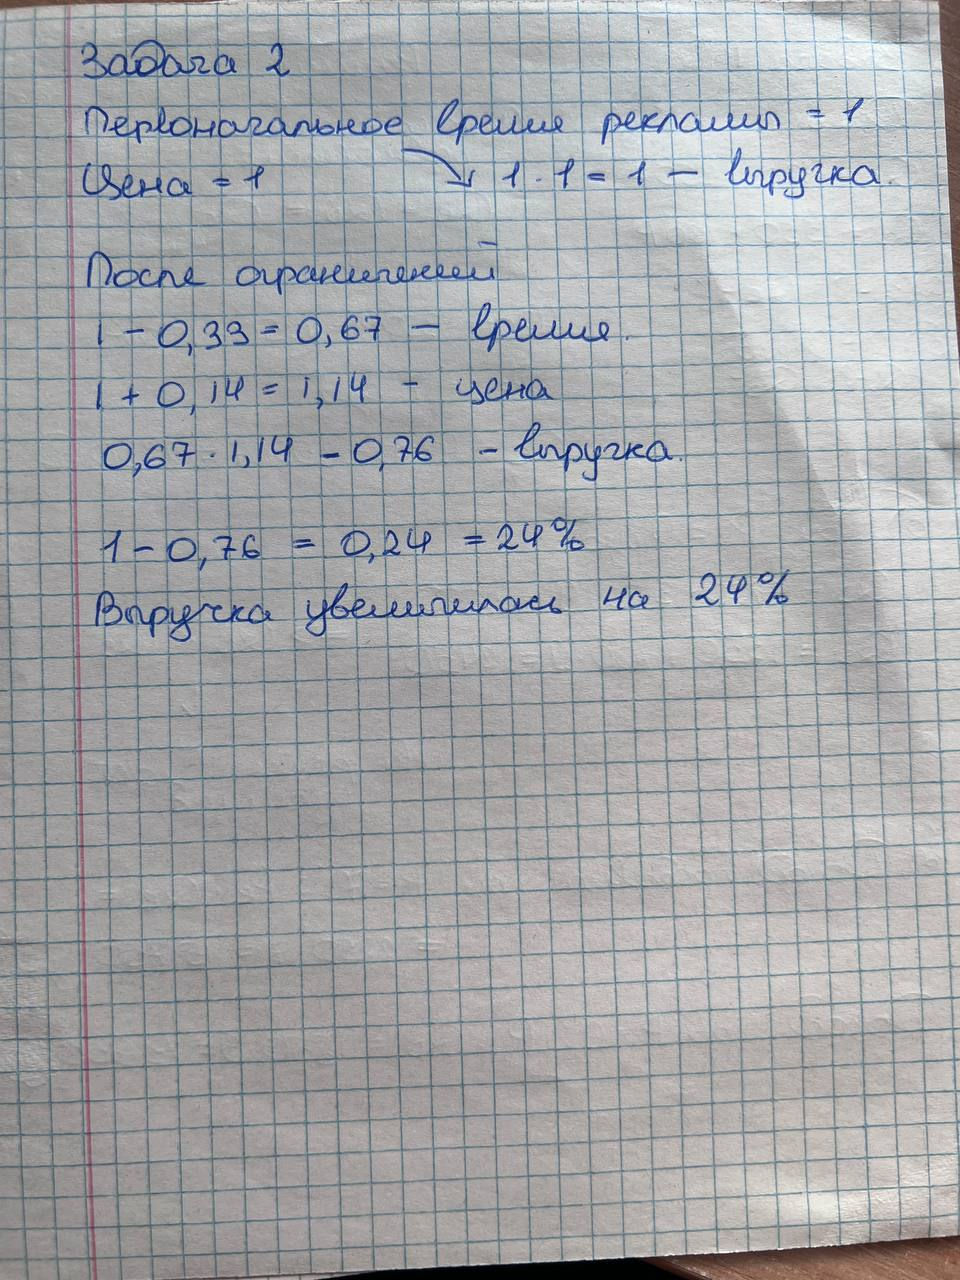 Задача 2
Первоначальное время рекламы = 1
Цена = 1 → 1 · 1 = 1 – выручка.
После ограничений
1 – 0,33 = 0,67 – время.
1 + 0,14 = 1,14 – цена
0,67 · 1,14 – 0,76 – выручка.
1 – 0,76 = 0,24 = 24%
Выручка увеличилась на 24%